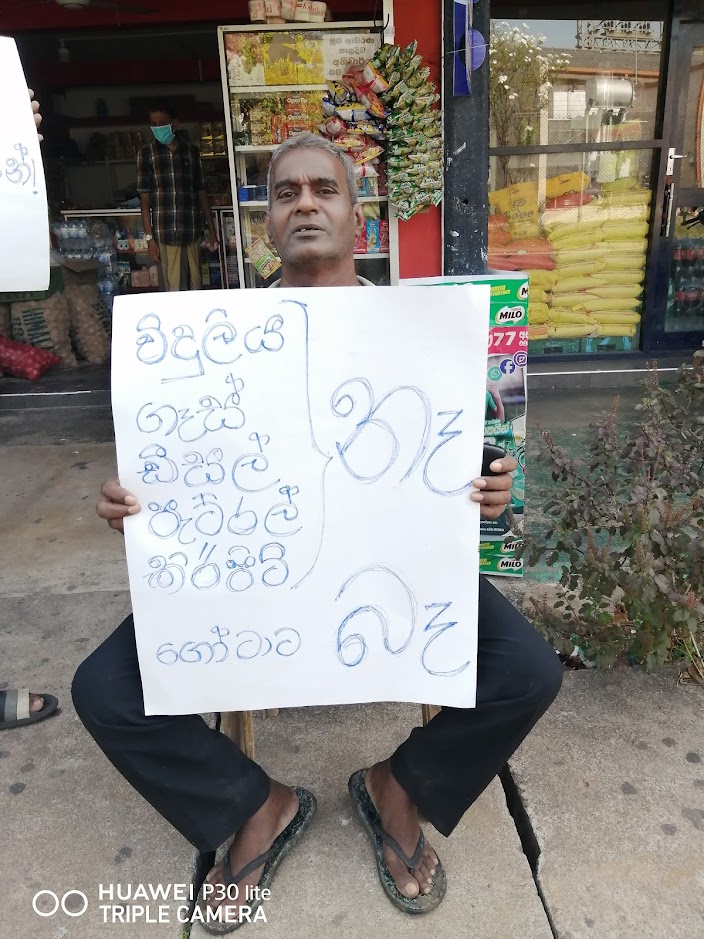 විදුලිය
ගෑස්
ඩීසල්
පැට්රල්
කිරිපිටි
නෑ
ගෝටාට
බෑ
MILO
077
MILO
MILO
HUAWEI P30 lite
TRIPLE CAMERA